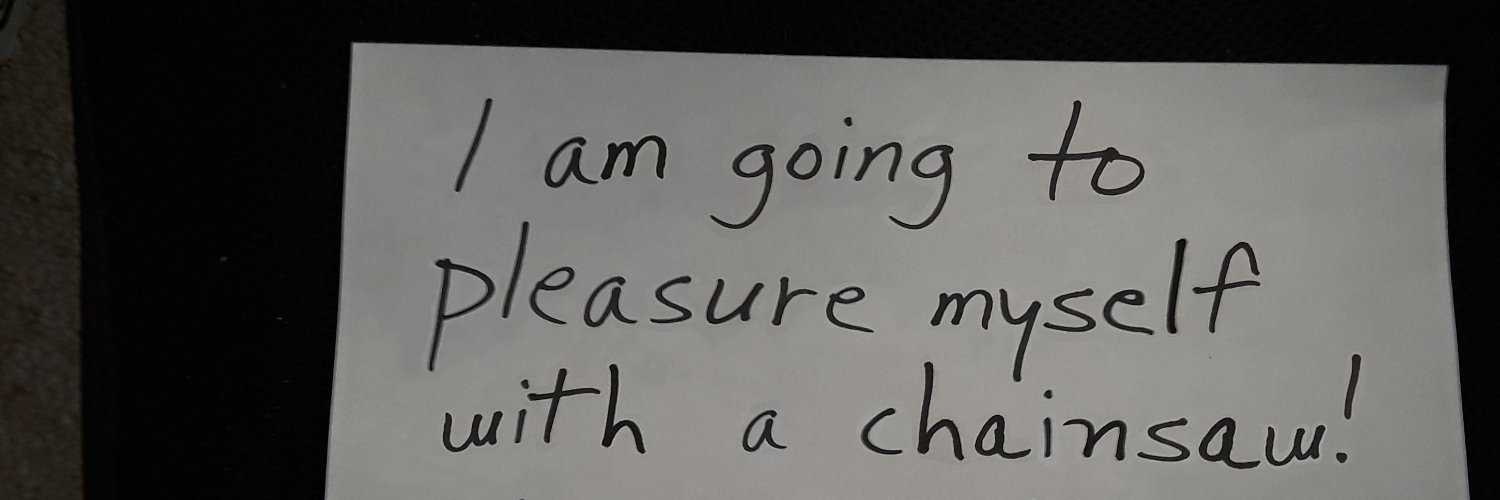 I am going to
pleasure myself
with a chainsaw!